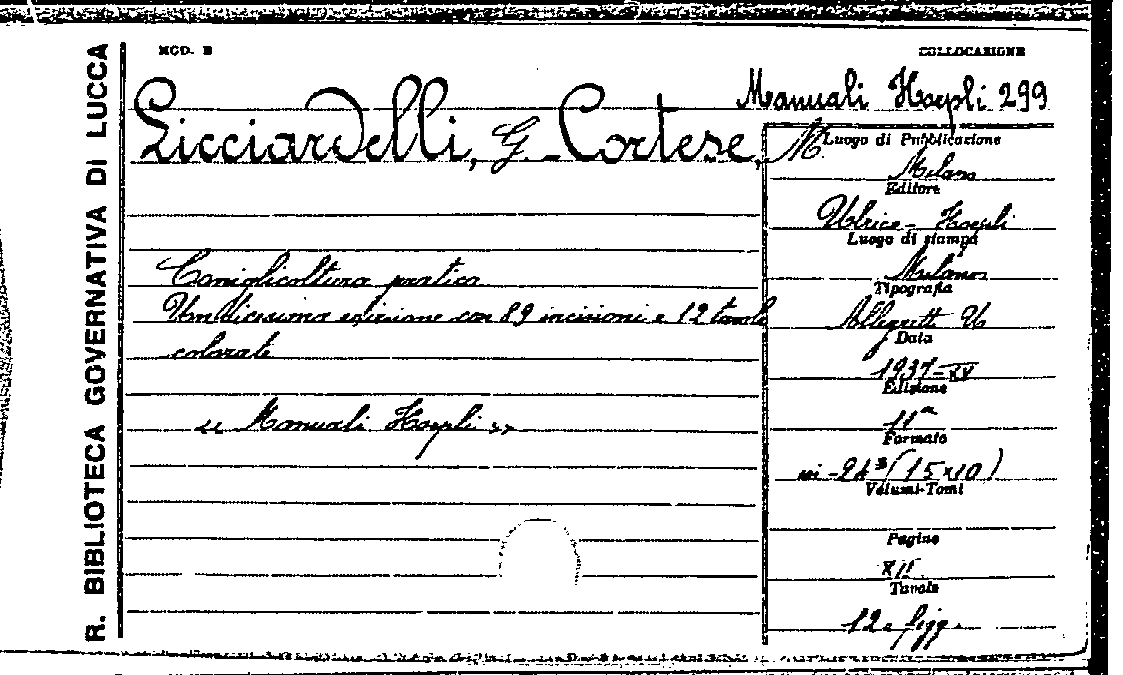 R. BIBLIOTECA GOVERNATIVA DI LUCCA
MOD. B
COLLOCAZIONE
Manuali Hoepli 299
Licciardelli, G - Cortese, M.
Coniglicoltura pratica
Undicesima edizione con 89 incisioni e 12 tavole
colorate
« Manuali Hoepli »
Luogo di Pubblicazione
Milano
Editore
Ulrico - Hoepli
Luogo di stampa
Milano
Tipografia
Allegretti U
Data
1937-XV
Edizione
11ª
Formato
in-24° (15x10)
Volumi-Tomi
Pagine
Tavole
12 e figg.